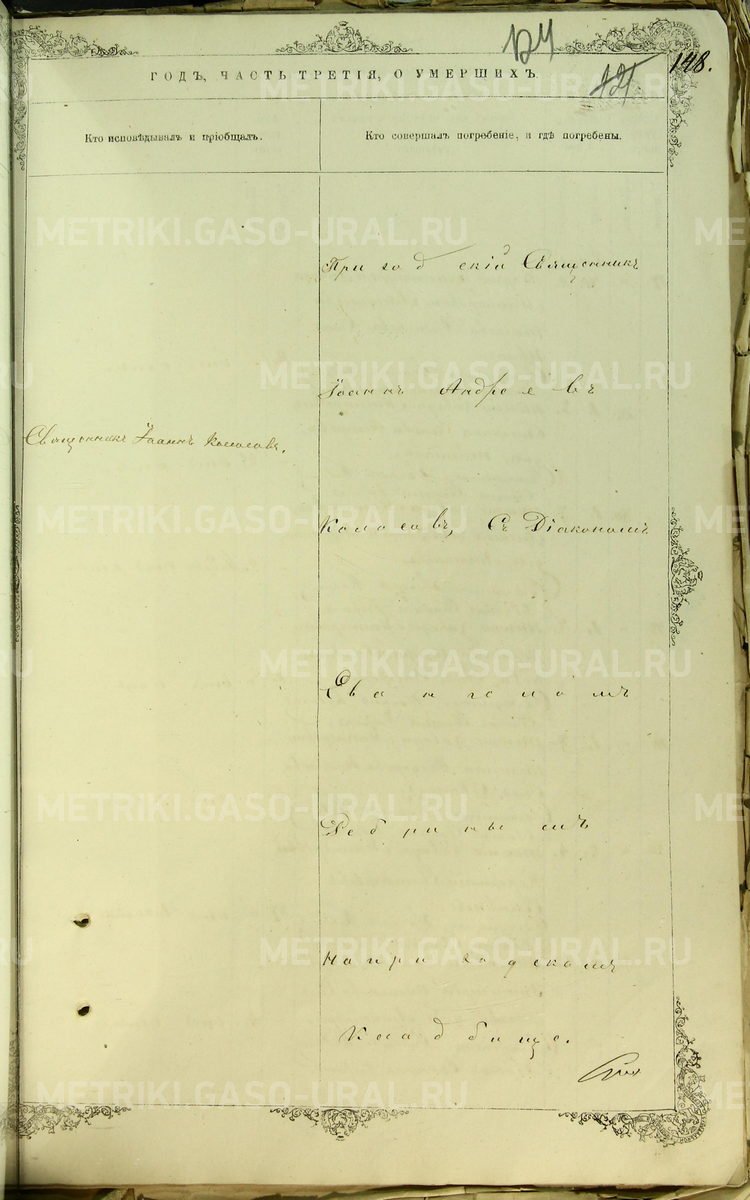 124
121
148.
ГОДЪ, ЧАСТЬ ТРЕТІЯ, О УМЕРШИХЪ
Кто исповѣдывалъ и пріобщалъ.
Кто совершалъ погребеніе, и гдѣ погребены.
Приходскій Священникъ
Іоаннъ Андреевъ
Священникъ Іоаннъ Колосовъ.
Колосовъ, съ Діакономъ
Евангеломъ
Дебринымъ
На приходскомъ
Кладбище.
METRIKI.GASO-URAL.RU